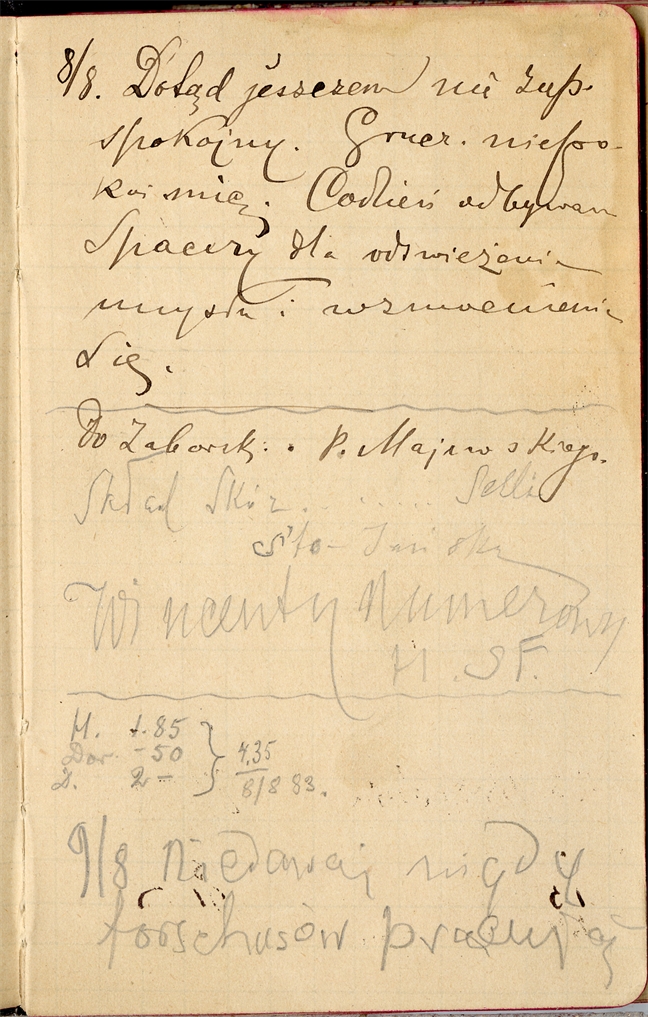 8/8. Dotąd jeszczem nie zup.
spokojny. Grucz. niepo-
koi mię. Codzień odbywam
Spacery dla odświeżania
umysłu i wzmocnienia
się.
Do Zaborsk. . P. Majewskiego.
Skład Skór . . . . . .
Sto-
Wincenty Numerowy
H. SF.
H. 1.85
Dor. -50
D. 2- } 4,35
8/8 83.
9/8 Niedawaj nigdy
forschusów pracują